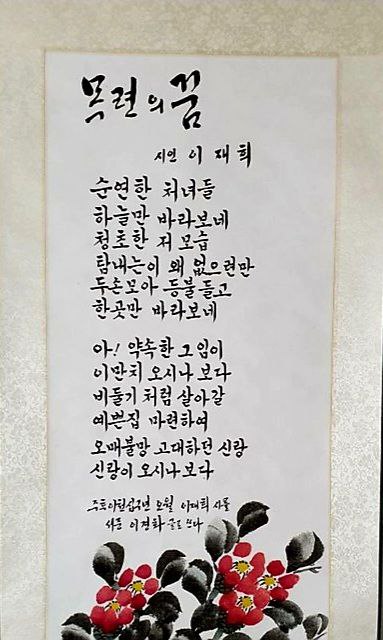 목련의 꿈
시인 이재희
순연한 처녀들
하늘만 바라보네
청초한 저 모습
탐내는이 왜 없으련만
두손모아 등불 들고
한곳만 바라보네
아! 약속한 그 임이
이만치 오시나 보다
비둘기 처럼 살아갈
예쁜집 마련하여
오매불망 고대하던 신랑
신랑이 오시나보다
오월 이재희 시를
이경화 글로 쓰다